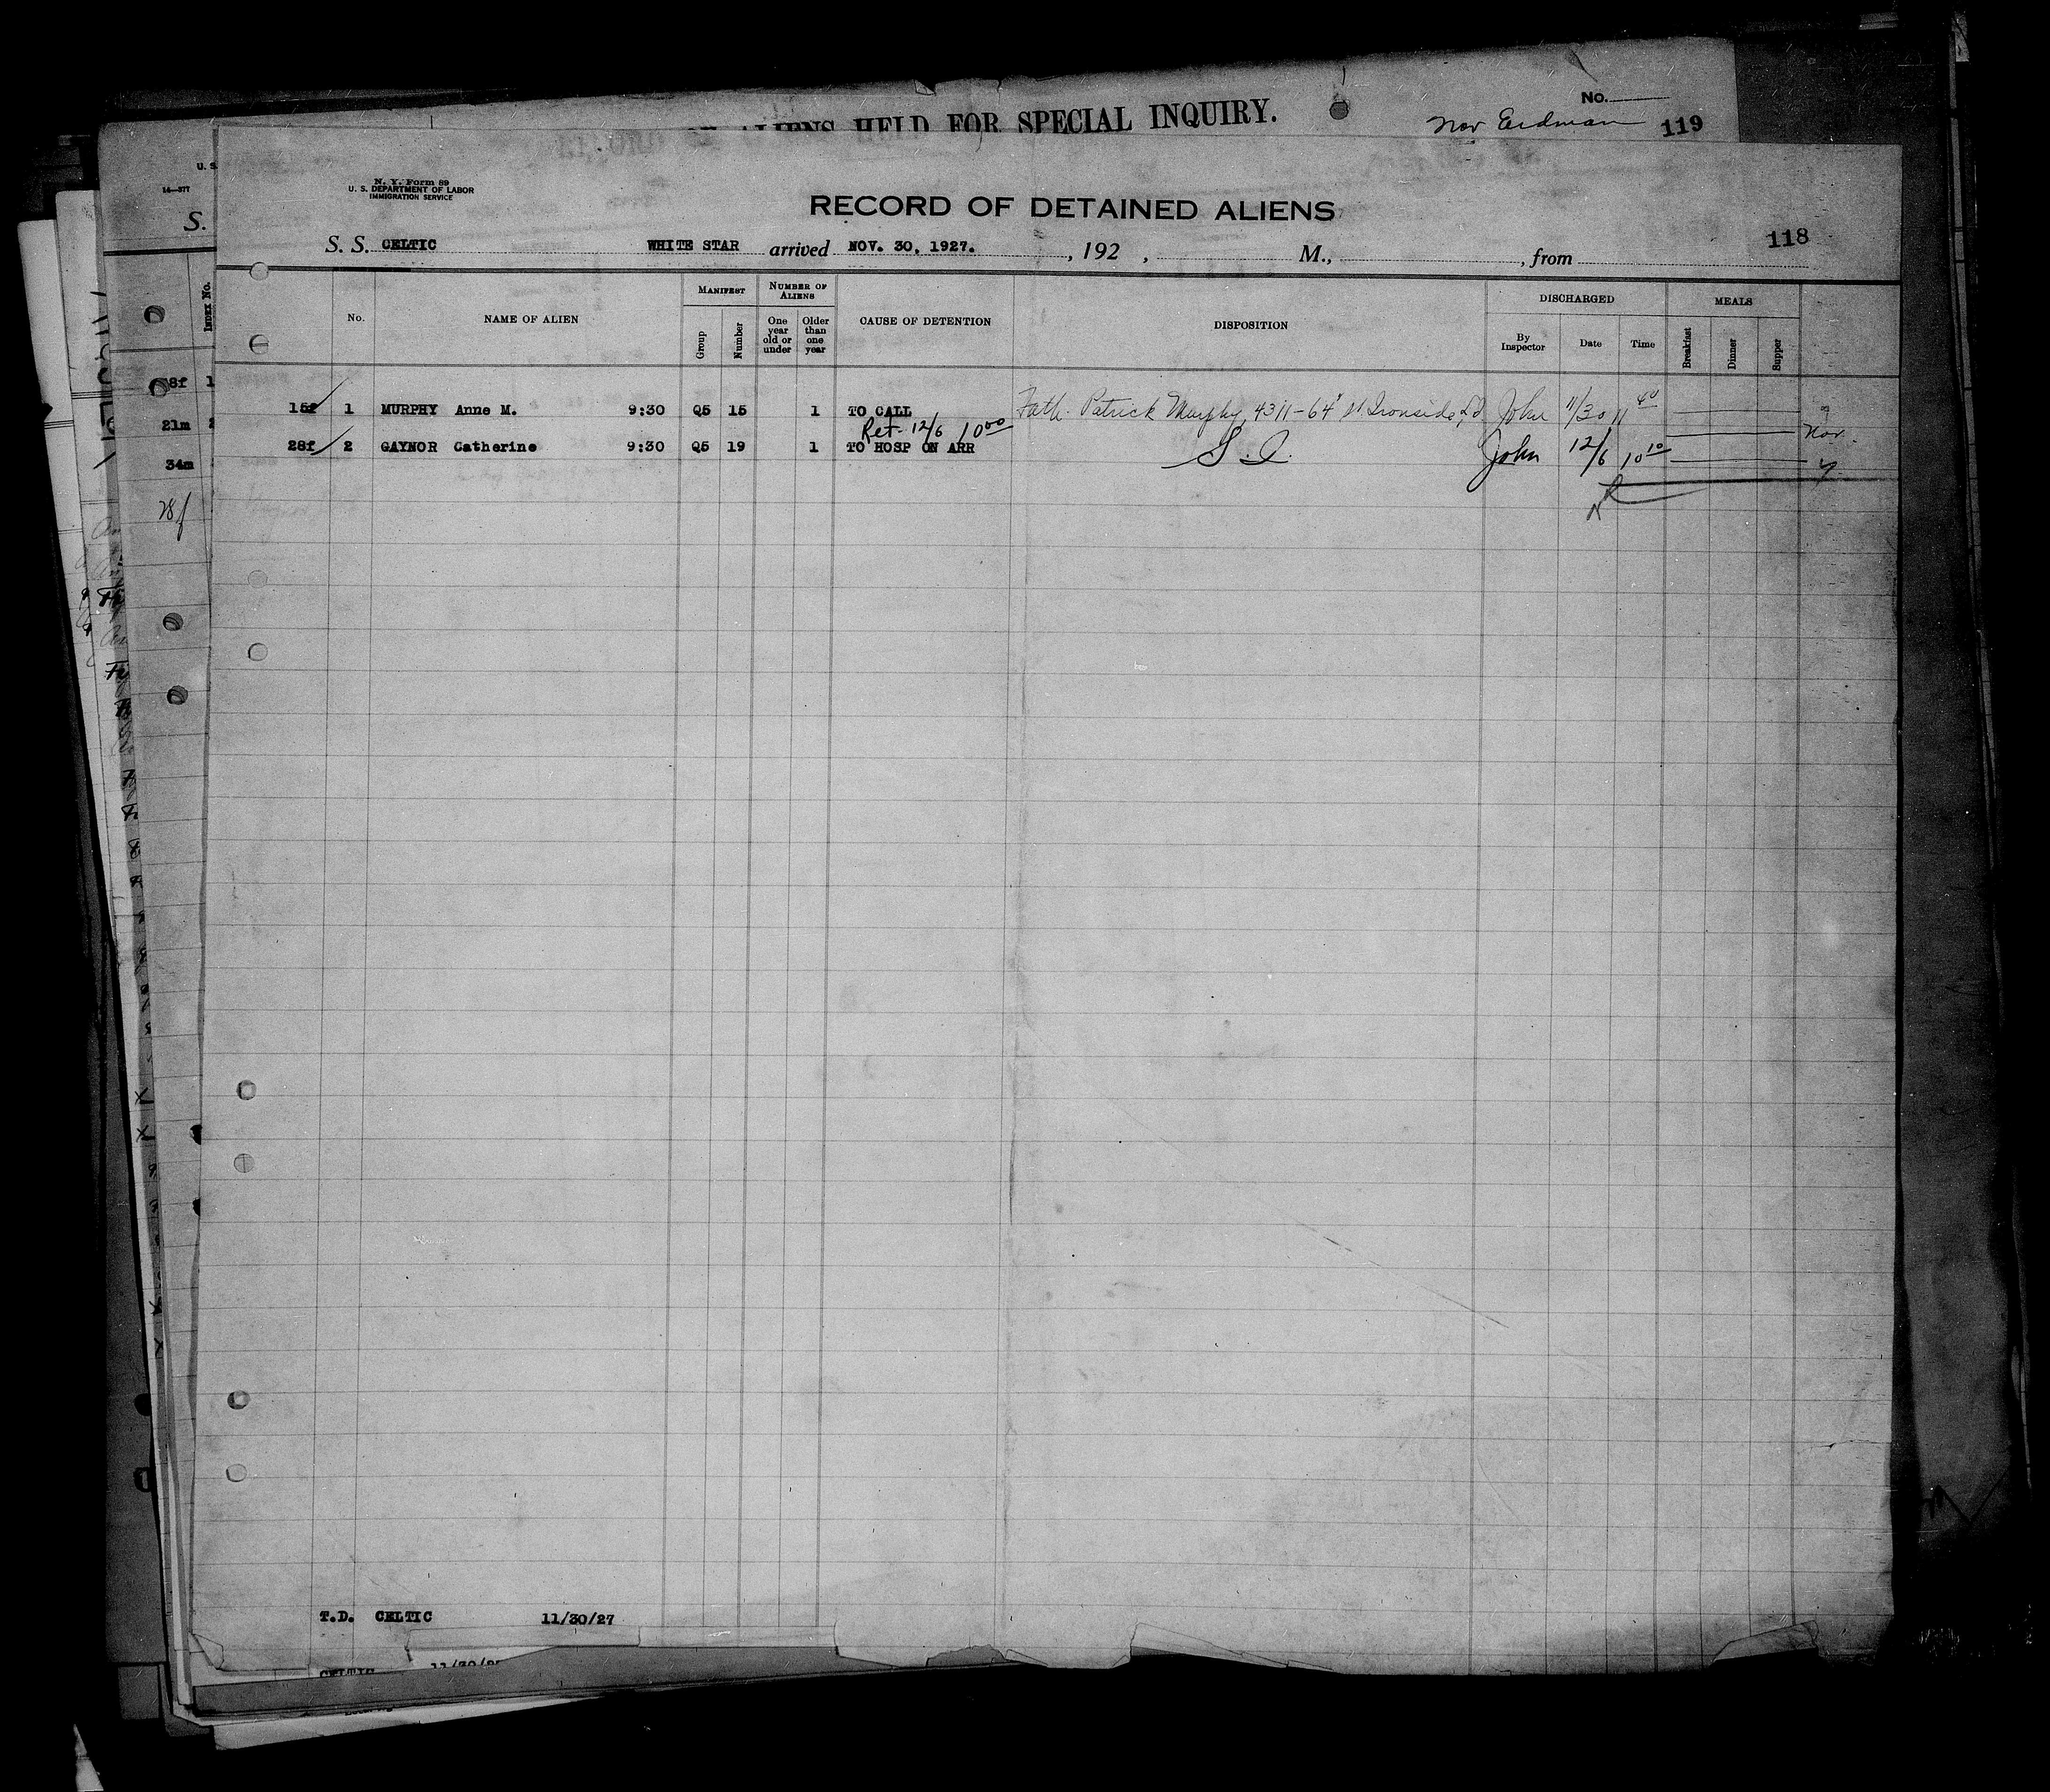 ALIENS HELD FOR SPECIAL INQUIRY.
No.
Nov Erdman 119
U. S.
14—377
S.
INDEX No.
N. Y. Form 89
U. S. DEPARTMENT OF LABOR
IMMIGRATION SERVICE
RECORD OF DETAINED ALIENS
118
S. S. CELTIC WHITE STAR arrived NOV. 30, 1927. , 192 , M., , from
No. NAME OF ALIEN MANIFEST NUMBER OF ALIENS CAUSE OF DETENTION DISPOSITION DISCHARGED MEALS
Group Number One year old or under Older than one year By Inspector Date Time Breakfast Dinner Supper
8f 1
15f 1 MURPHY Anne M. 9:30 Q5 15 1 TO CALL Fath. Patrick Murphy, 4311-64" st Ironside, L.I. John 11/30 11 40
21m 2
Ret- 12/6 10 00
Nov.
28f 2 GAYNOR Catherine 9:30 Q5 19 1 TO HOSP ON ARR S.I. John 12/6 10 10
34m
28f
T.D. CELTIC 11/30/27
CELTIC 11/30/27